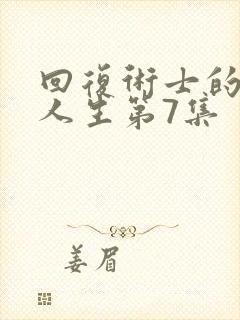 回復術士的
人生第7集
姜眉